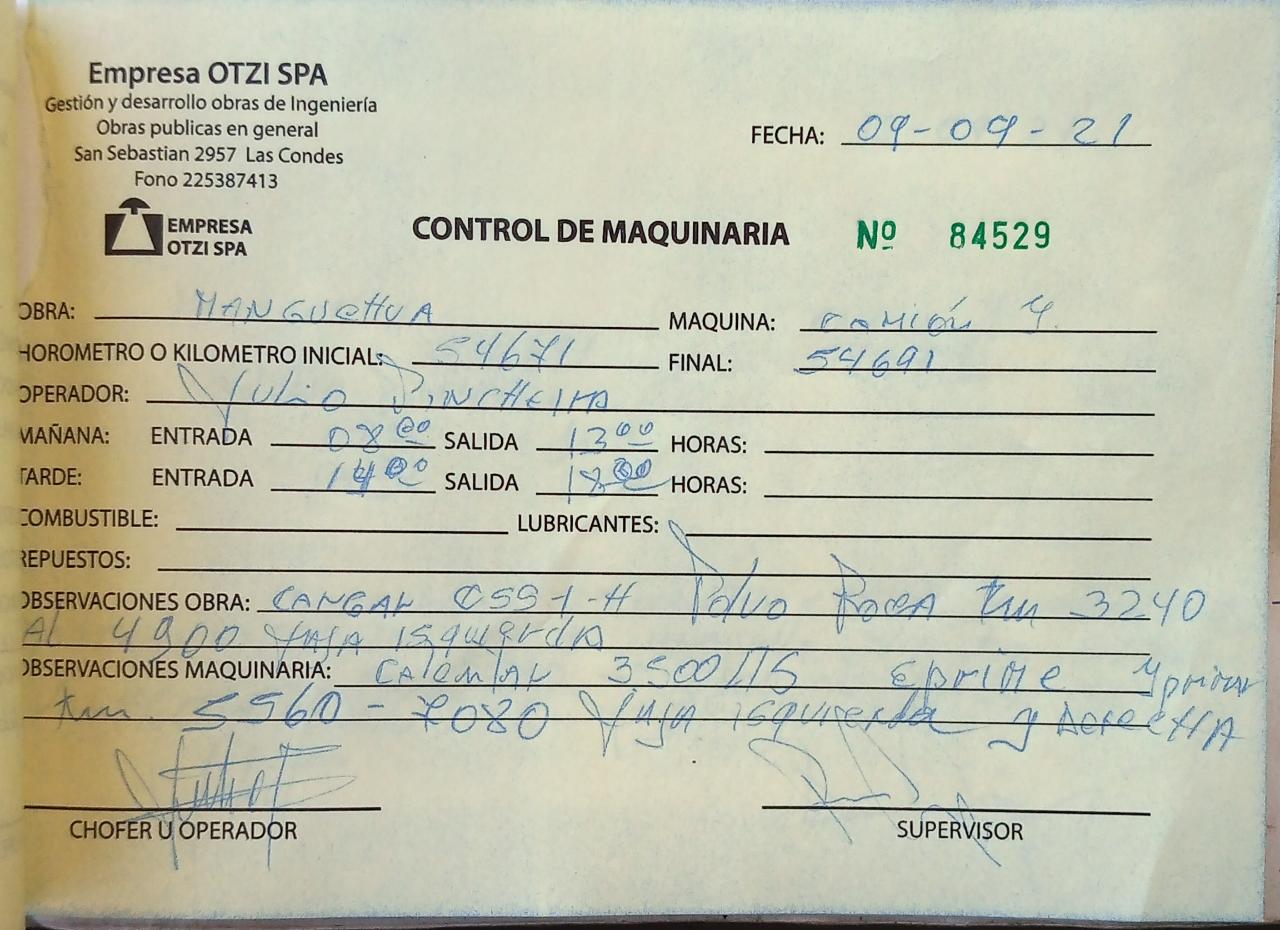 Empresa OTZI SPA
Gestión y desarrollo obras de Ingeniería
Obras publicas en general
San Sebastian 2957 Las Condes
Fono 225387413
FECHA: 09-09-21
EMPRESA
OTZI SPA
CONTROL DE MAQUINARIA Nº 84529
OBRA: MANGUEHUA MAQUINA: camión
HOROMETRO O KILOMETRO INICIAL: 54671 FINAL: 54691
OPERADOR: Julio Pincheira
MAÑANA: ENTRADA 08:00 SALIDA 13:00 HORAS:
TARDE: ENTRADA 14:00 SALIDA 18:00 HORAS:
COMBUSTIBLE: LUBRICANTES:
REPUESTOS:
OBSERVACIONES OBRA: CSS-1-H Polvo Roca km 3240
Al 4900 faja isquierda
OBSERVACIONES MAQUINARIA: 3500 LTS
km. 5560 - 7080 faja isquierda y Derecha
CHOFER U OPERADOR SUPERVISOR